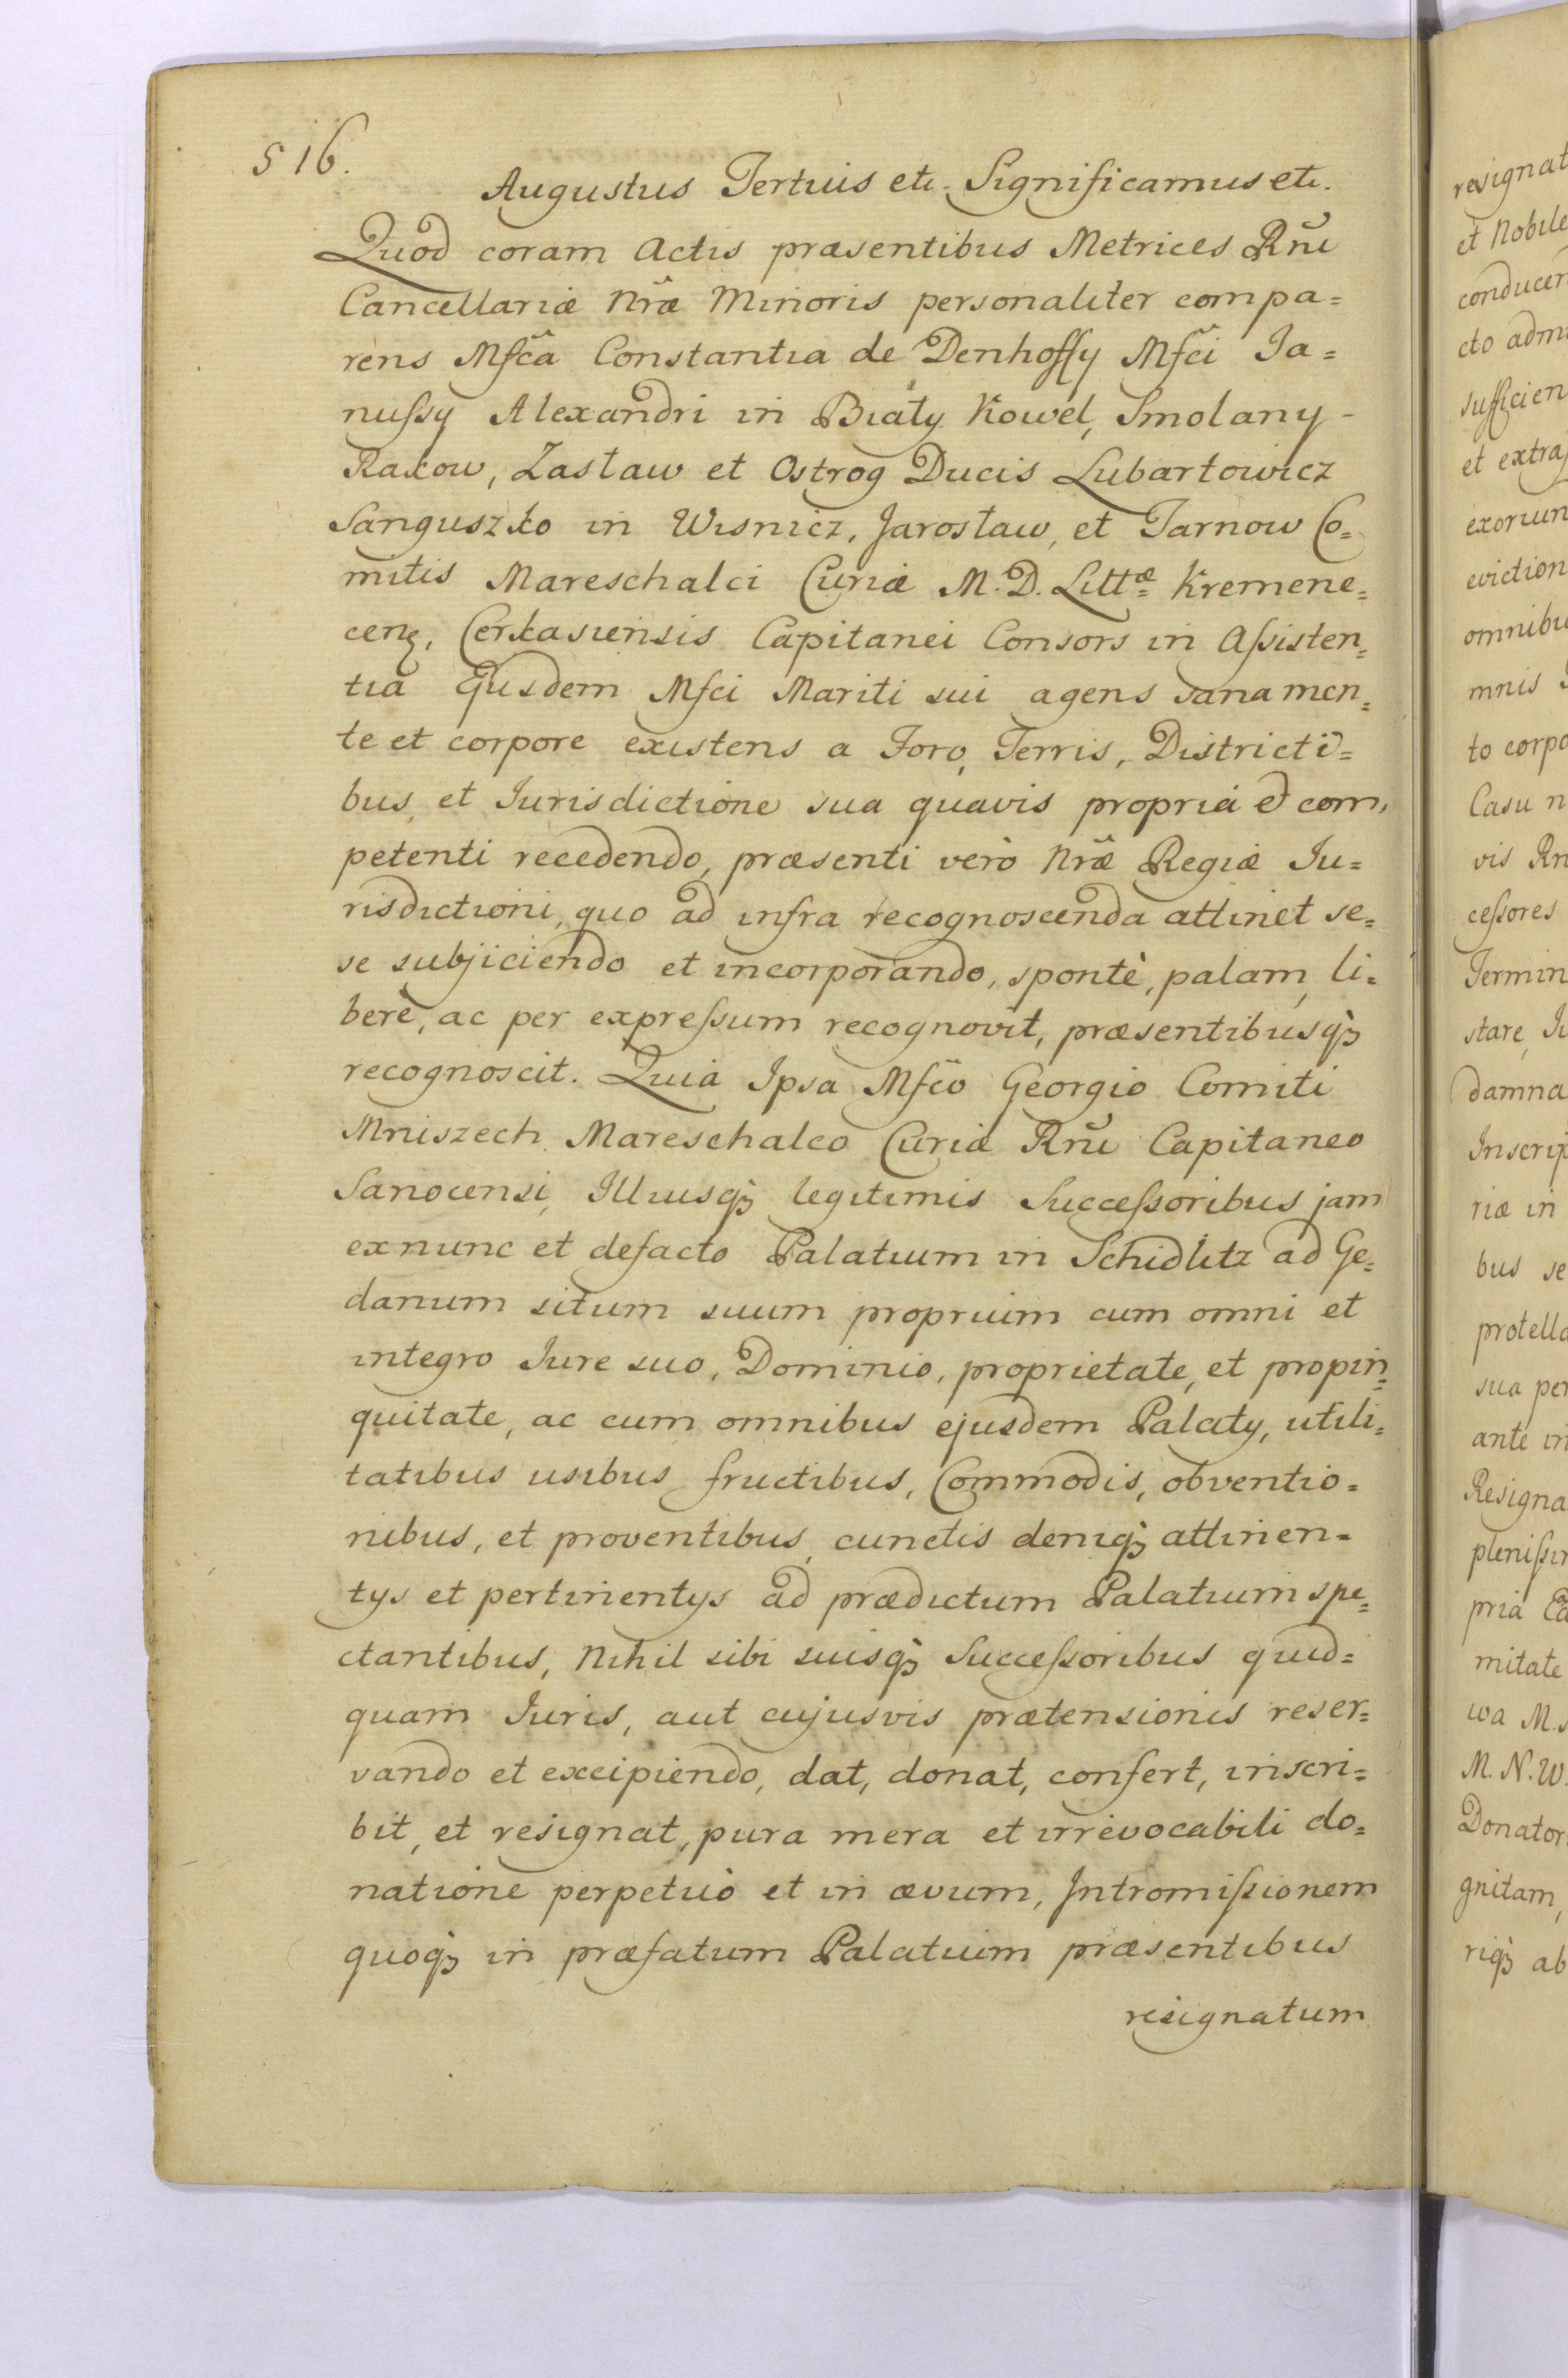 516.
Augustus Tertius etc. Significamus etc.
Quod coram Actis præsentibus Metrices Rñi
Cancellariæ Nræ Minoris personaliter compa=
rens Mfca Constantia de Denhoffy Mfci Ja=
nuſsy Alexandri in Biały Kowel, Smolany-
Rakow, Zasław et Ostrog Ducis Lubartowicz
Sanguszko in Wisnicz, Jarosław, et Tarnow Co=
mitis Mareschalci Curiæ M. D. Littæ Kremene=
cenę, Cerkasiensis Capitanei Consors in Aſsisten=
tia Ejusdem Mfci Mariti sui agens sana men=
te et corpore existens a Foro, Terris, Districti=
bus, et Jurisdictione sua quavis propria et com=
petenti recedendo, præsenti verò Nræ Regiæ Ju=
risdictioni, quo ad infra recognoscenda attinet se=
se subjiciendo et incorporando, spontè, palam, li=
berè, ac per expreſsum recognovit, præsentibusq3
recognoscit. Quia Ipsa Mfco Georgio Comiti
Mniszech Mareschalco Curiæ Rñi Capitaneo
Sanocensi, Illiusq3 legitimis Succeſsoribus jam
exnunc et defacto Palatium in Schidlitz ad Ge=
danum situm suum proprium cum omni et
integro Jure suo, Dominio, proprietate, et propin=
quitate, ac cum omnibus ejusdem Palaty, utili=
tatibus usibus fructibus, Commodis, obventio=
nibus, et proventibus, cunctis deniq3 attinen=
tys et pertinentys ad prædictum Palatium spe=
ctantibus, Nihil sibi suisq3 Succeſsoribus quid=
quam Juris, aut cujusvis prætensionis reser=
vando et excipiendo, dat, donat, confert, inscri=
bit, et resignat, pura mera et irrevocabili do=
natione perpetuò et in ævum, Intromiſsionem
quoq3 in præfatum Palatium præsentibus
resignatum
resignat
et Nobile
conducen
cto adm
sufficien
et extra
exoriun
eviction
omnibu
mnis
to corpo
Casu n
vis Rn
ceſsores
Termin
stare, Ju
damna
Inscrip
riæ in
bus se
protella
sua per
ante in
Resigna
pleniſsi
pria
mitate
wa M.
M. N. W.
Donator
gnitam,
riq3 ab